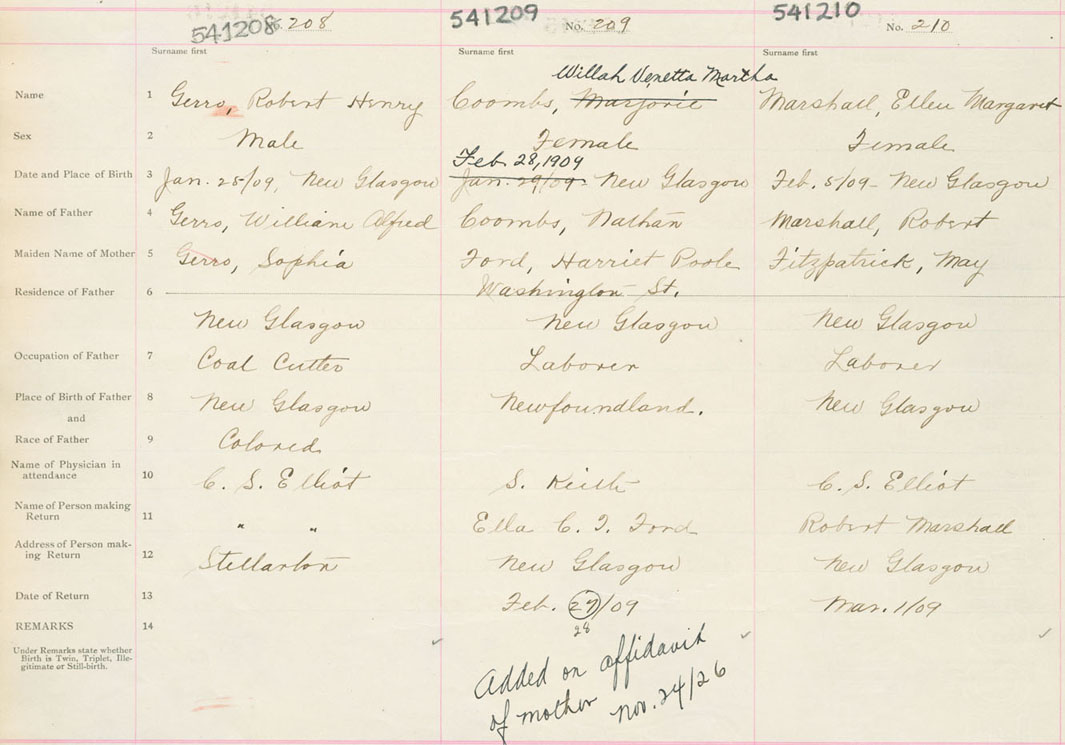 541208 No. 208 541209 No. 209 541210 No. 210
Surname first Surname first Surname first
Willah Venetta Martha
Name 1 Gerro, Robert Henry Coombs, Marjorie Marshall, Ellen Margaret
Sex 2 Male Female Female
Feb. 28, 1909
Date and Place of Birth 3 Jan. 25/09, New Glasgow Jan. 29/09- New Glasgow Feb. 5/09- New Glasgow
Name of Father 4 Gerro, William Alfred Coombs, Nathan Marshall, Robert
Maiden Name of Mother 5 Gerro, Sophia Ford, Harriet Poole Fitzpatrick, May
Residence of Father 6 Washington St.
New Glasgow New Glasgow New Glasgow
Occupation of Father 7 Coal Cutter Laborer Laborer
Place of Birth of Father 8 New Glasgow Newfoundland. New Glasgow
and
Race of Father 9 Colored
Name of Physician in
attendance 10 C. S. Elliot S. Keith C. S. Elliot
Name of Person making
Return 11 " " Ella C. T. Ford Robert Marshall
Address of Person mak-
ing Return 12 Stellarton New Glasgow New Glasgow
Date of Return 13 Feb. 27/09 Mar. 1/09
28
REMARKS 14
Under Remarks state whether
Birth is Twin, Triplet, Ille-
gitimate or Still-birth.
Added on affidavit
of mother Nov. 24/26